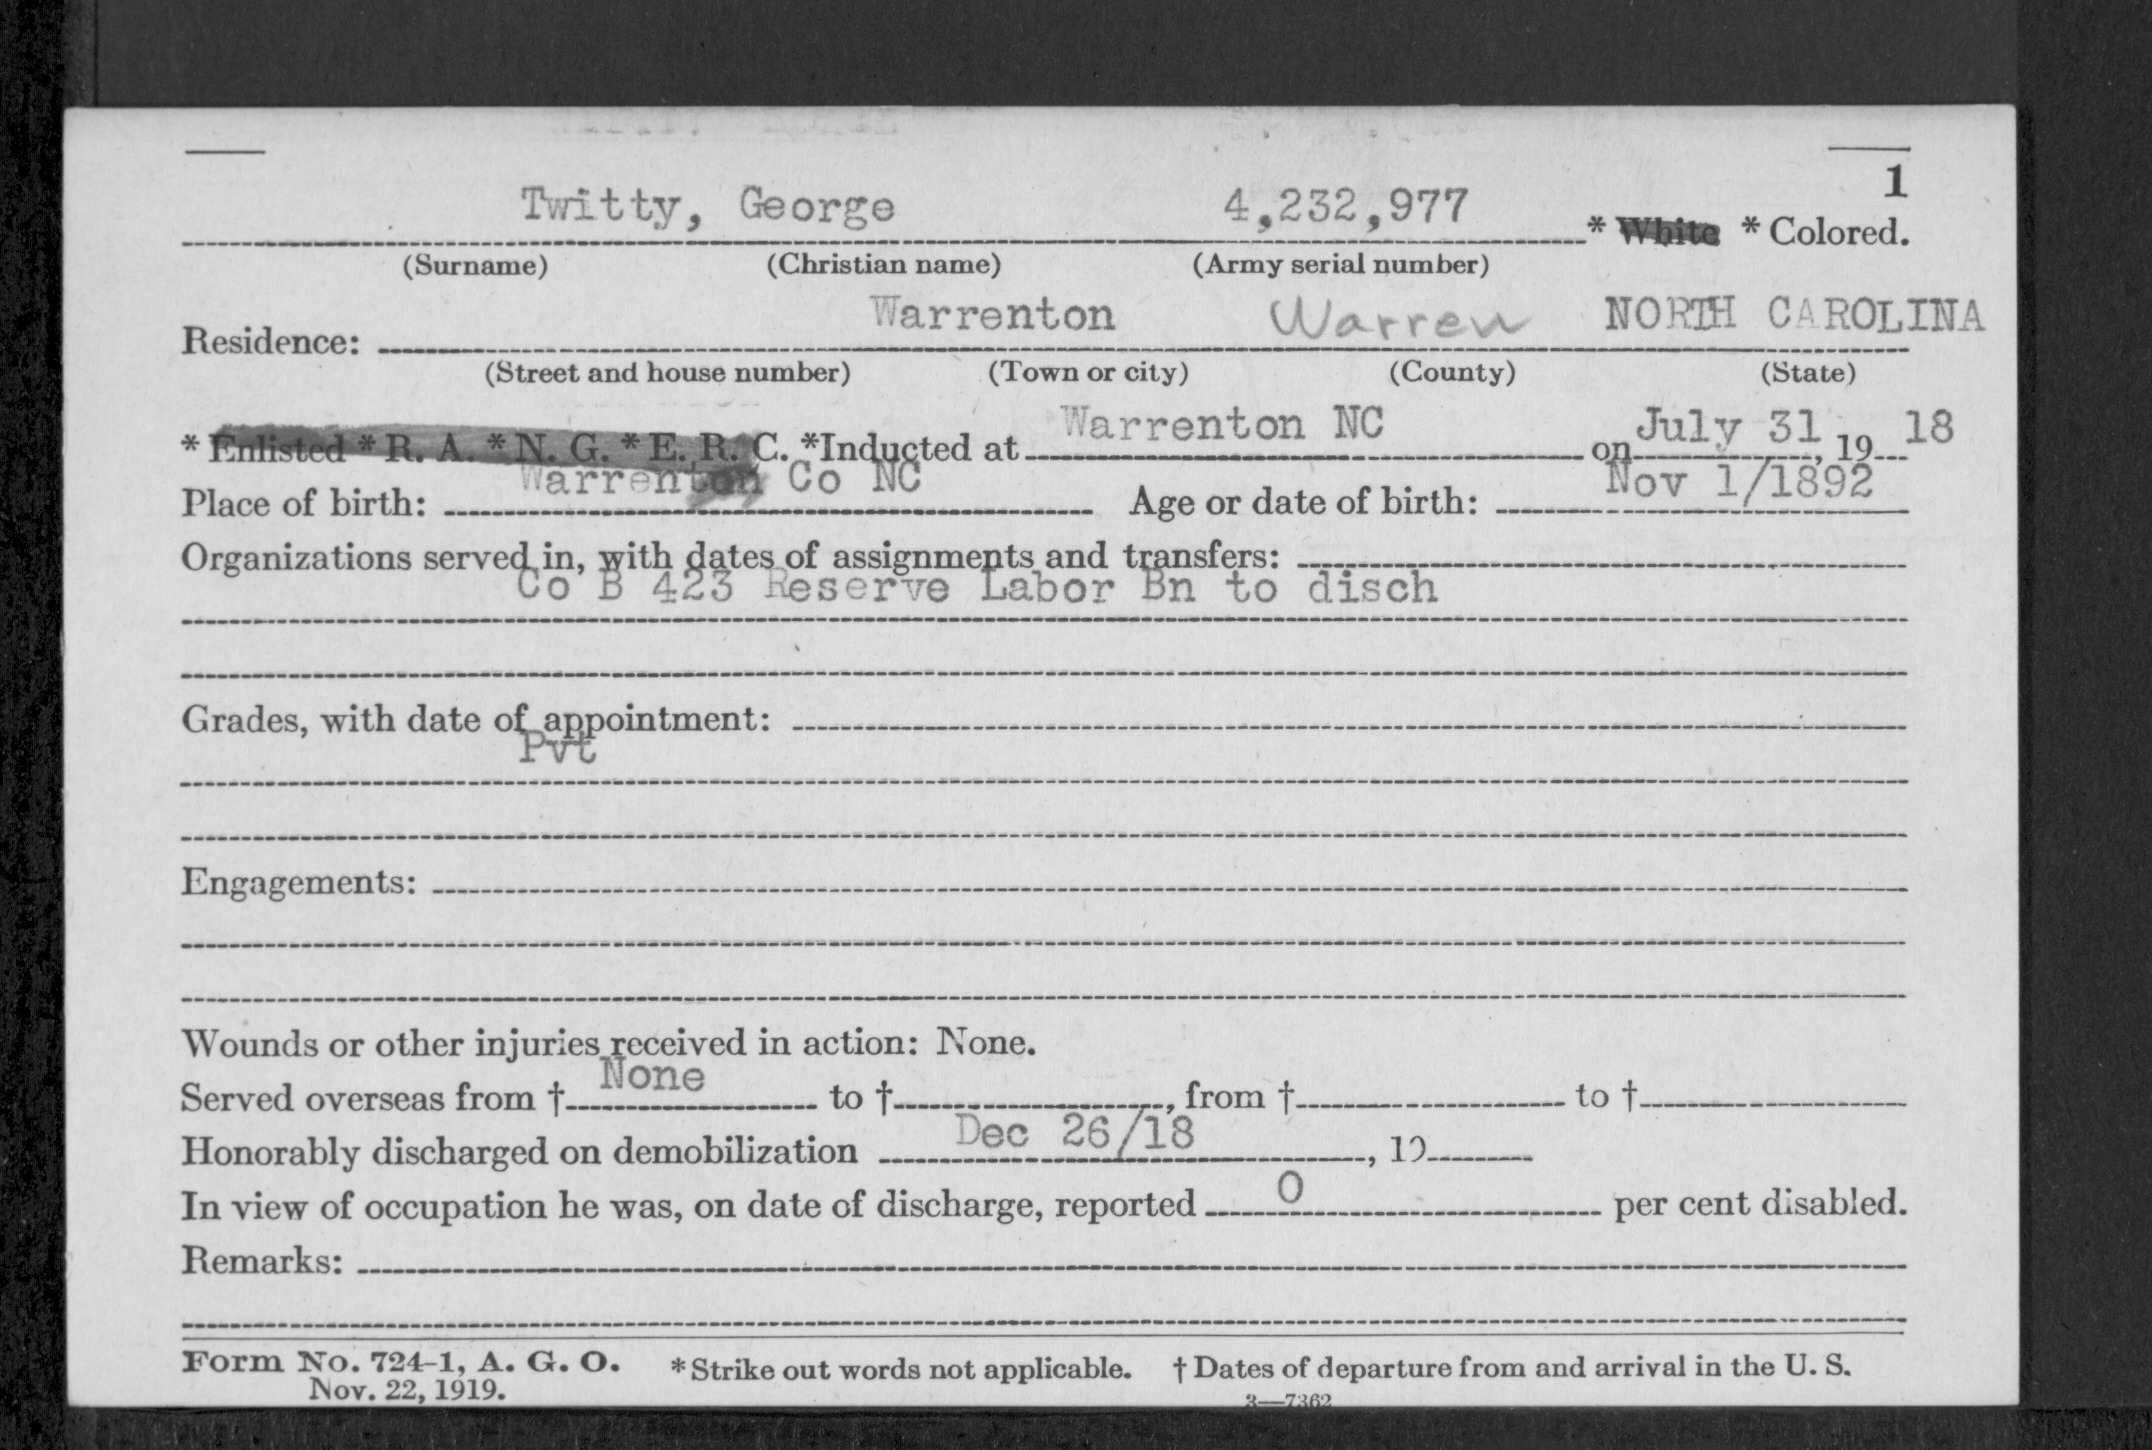 1
Twitty, George 4,232,977 * White * Colored.
(Surname) (Christian name) (Army serial number)
Residence: Warrenton Warren NORTH CAROLINA
(Street and house number) (Town or city) (County) (State)
* Enlisted * R. A. * N. G. * E. R. C. *Inducted at Warrenton NC on July 31, 19 18
Place of birth: Warrenton Co NC Age or date of birth: Nov 1/1892
Organizations served in, with dates of assignments and transfers:
Co B 423 Reserve Labor Bn to disch
Grades, with date of appointment:
Pvt
Engagements:
Wounds or other injuries received in action: None.
Served overseas from † None to †, from † to †
Honorably discharged on demobilization Dec 26/18, 19
In view of occupation he was, on date of discharge, reported 0 per cent disabled.
Remarks:
Form No. 724-1, A. G. O. * Strike out words not applicable. † Dates of departure from and arrival in the U. S.
Nov. 22, 1919.
3—7362